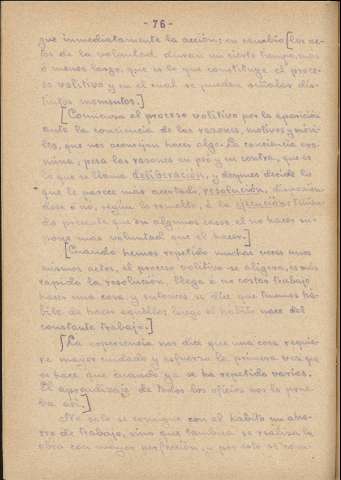 - 76 -
que inmediatamente la acción; en cambio [los ac-
tos de la voluntad duran un cierto tiempo, más
ó menos largo, que es lo que constituye el proce-
so volitivo y en el cual se pueden señalar dis-
tintos momentos.]
[Comienza el proceso volitivo por la aparición
ante la conciencia de las razones, motivos y móvi-
les, que nos aconsejan hacer algo. La conciencia exa-
mina, pesa las razones en pró y en contra, que es
lo que se llama deliberación, y después decide lo
que le parece más acertado, resolución, disponién-
dose ó no, según lo resuelto, á la ejecución tenien-
do presente que en algunos casos el no hacer su-
pone más voluntad que el hacer.]
[Cuando hemos repetido muchas veces unos
mismos actos, el proceso volitivo se aligera, es más
rápida la resolución, llega á no costar trabajo
hacer una cosa y entonces se dice que tenemos há-
bito de hacer aquello; luego el hábito nace del
constante trabajo.]
[La experiencia nos dice que una cosa requie-
re mayor cuidado y esfuerzo la primera vez que
se hace que cuando ya se ha repetido varias.
El aprendizaje de todos los oficios nos lo prue-
ba así.]
No solo se consigue con el hábito un aho-
rro de trabajo, sino que también se realiza la
obra con mayor perfección, y por esto se